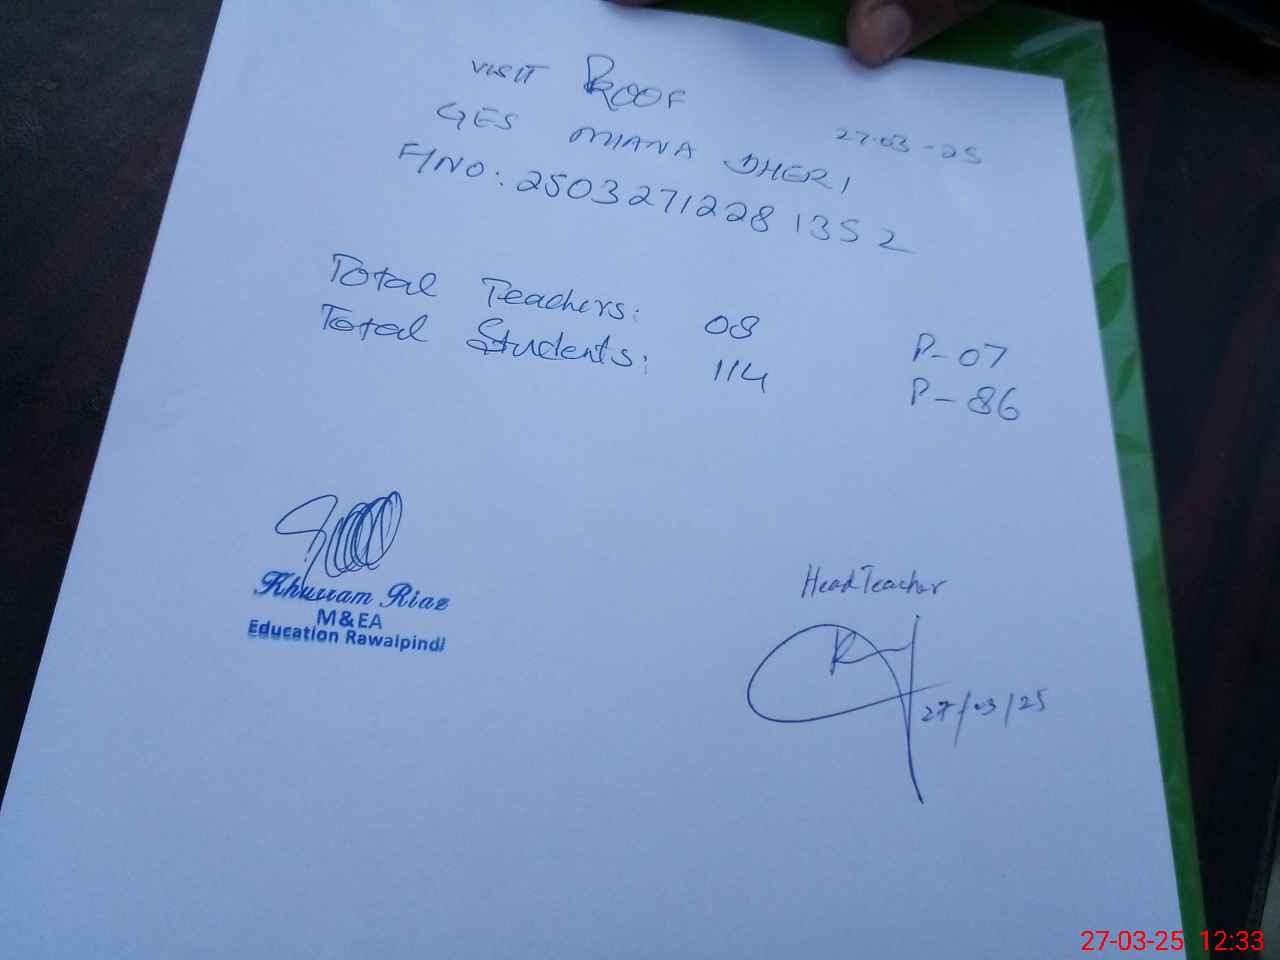 VISIT PROOF
27-03-25
GES MIANA DHERI
F/NO: 2503271228 1352
Total Teachers: 08 P-07
Total Students: 114 P-86
Khurram Riaz
M&EA
Education Rawalpindi
Head Teacher
27/03/25
27-03-25 12:33